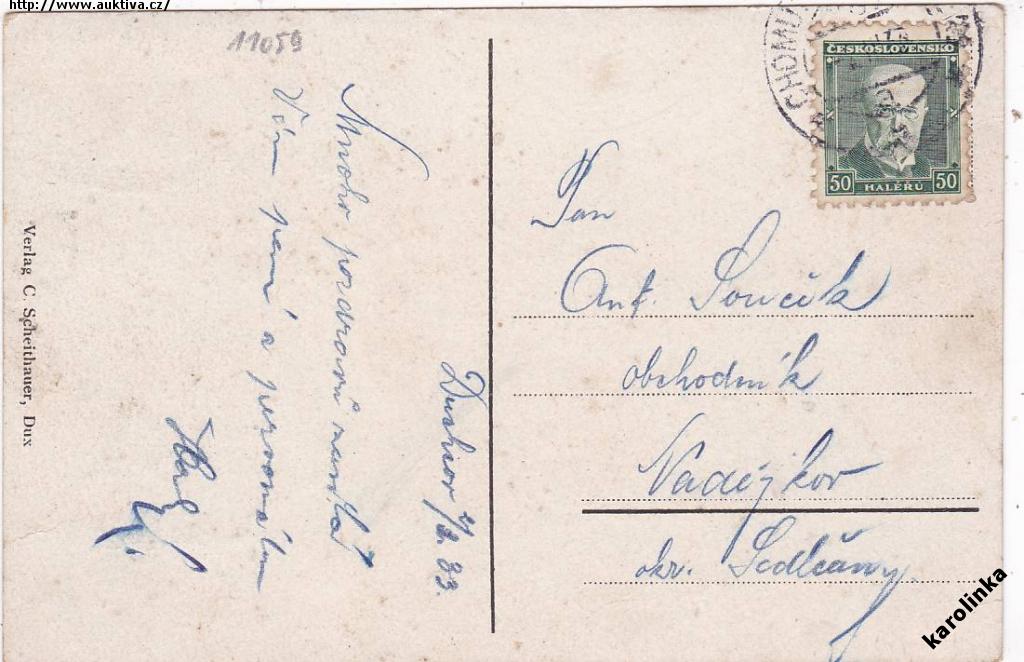 http://www.auktiva.cz/
11059
Mnoho pozdravů zasílá
Vám paní a personálu
Duchcov 2/2. 33.
Verlag C. Scheithauer, Dux
CHOMU
ČESKOSLOVENSKO
50 HALÉŘŮ 50
Pan
Ant. Součik
obchodník
Nadějkov
okr. Sedlčany.
karolinka